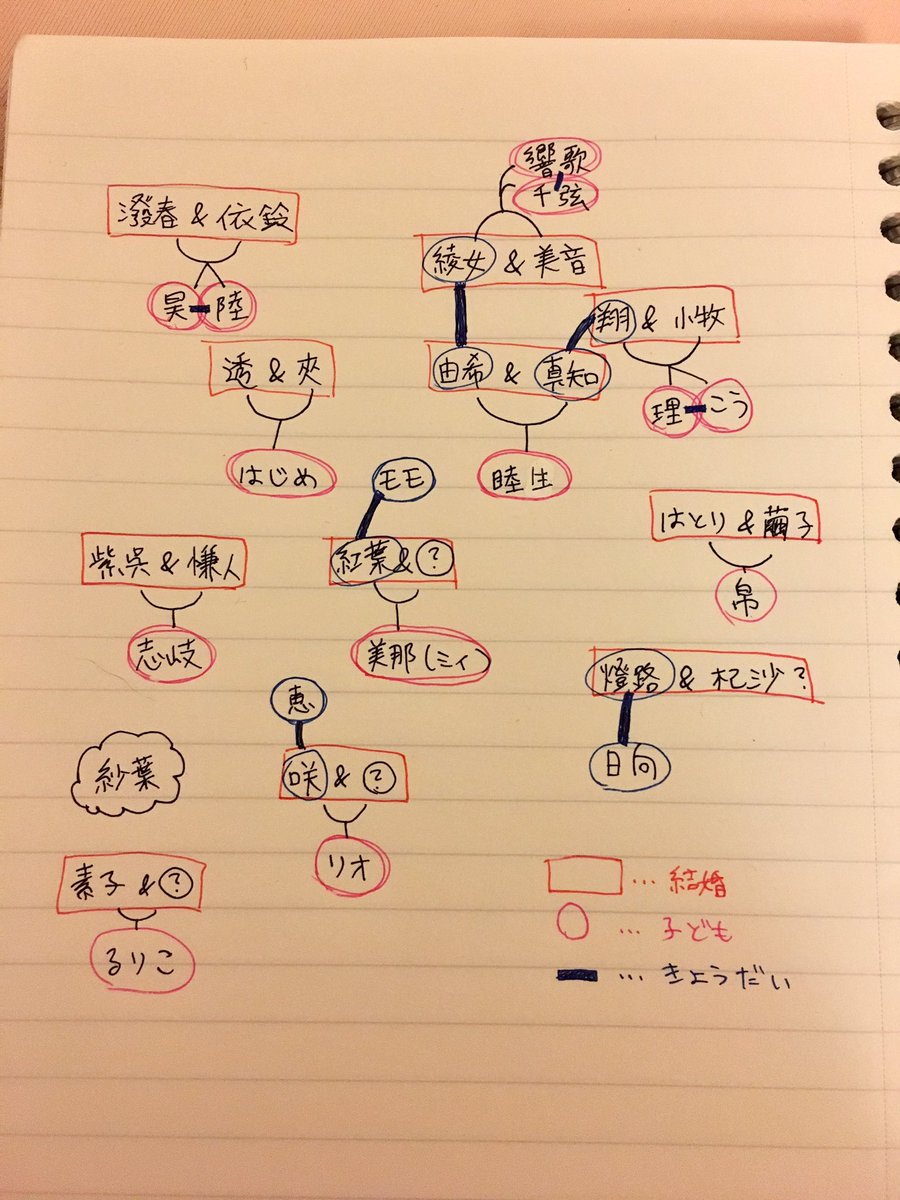 響歌
千弦
潑春 & 依鈴
綾女 & 美音
昊 陸
翔 & 小牧
透 & 夾
由希 & 真知
理 こう
はじめ
モモ
睦生
はとり & 繭子
紫呉 & 慊人
紅葉 & ?
帛
志岐
美那(ミィ)
燈路 & 杞沙?
恵
日向
紗葉
咲 & ?
リオ
素子 & ?
るりこ
… 結婚
… 子ども
… きょうだい